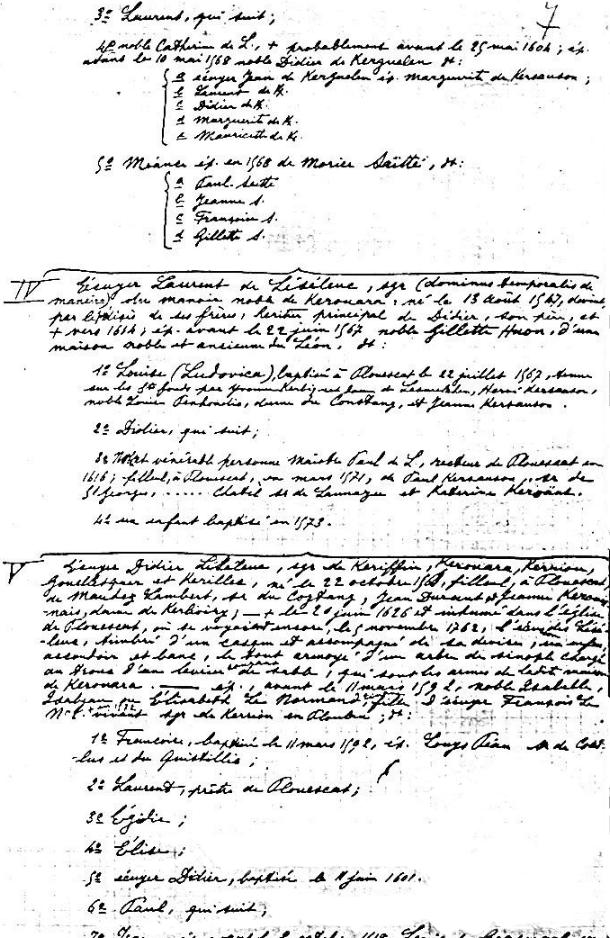 7
3º Laurent, qui suit;
4º noble Catherine de L., + probablement avant le 25 mai 1604; ép.
avant le 10 mai 1568 noble Didier de Kerguelen dt:
a écuyer Jean de Kerguelen ép. marguerite de Kersauson;
b Laurent de K.
c Didier de K.
d Marguerite de K.
e Mauricette de K.
5º Méance ép. en 1568 de Morice Saïtté, dt:
a Paul Saïtté
b Jeanne S.
c Françoise S.
d Gillette S.
IV Écuyer Laurent de Liséleuc, sgr (dominus temporalis de
manerio) du manoir noble de Kerouara, né le 13 août 1547, devint
par le décès de ses frères, héritier principal de Didier, son père, et
+ vers 1614; ép. avant le 22 juin 1567 noble Gillette Huon, d'une
maison noble et ancienne du Léon, dt:
1º Louise (Ludovica), baptisée à Plouescat le 22 juillet 1567, tenue
sur les Sts fonds par Yvonne, Hervé Kersauson,
noble Louise, dame du Constang, et Jeanne Kersauson.
2º Didier, qui suit;
3º vénérable personne Maistre Paul de L., recteur de Plouescat en
1616; filleul, à Plouescat, en mars 1571, de Paul Kersauson, sr de
St Georges, ..... Clabil sr de Launazeu et Katerine Keroüas.
4º un enfant baptisé en 1573.
V Écuyer Didier Liséleuc, sgr de Keriffin, Kerouara, Kerriou,
Gouélesquer et Kerilles, né le 22 octobre, filleul, à Plouescat,
de Maudez Lambert, sr du Cosstang, Jean et Jeanne
, dame de Kerboirz, — + le 20 juin 1626 et inhumé dans l'église
de Plouescat, où se voyait encore, le 5 novembre 1762, l'écu des Lisé-
leuc, timbré d'un casque et accompagné de sa devise; un
accoudoir et banc, le tout armoyé d'un arbre de sinople chargé
au tronc d'un levrier rampant de sable, qui sont les armes de ladite maison
de Kerouara. — ép., avant le 11 mars 1592, noble Isabelle,
Élisabeth Le Normand, fille d'écuyer François Le
N. vivant sgr de Kerriou en, dt:
1º Françoise, baptisée le 11 mars 1592, ép. Louys Péan sr de Coat-
lus et du Quistillic;
2º Laurent, prêtre de Plouescat;
3º Égidie;
4º Élise;
5º écuyer Didier, baptisé le 11 juin 1601.
6º Paul, qui suit;